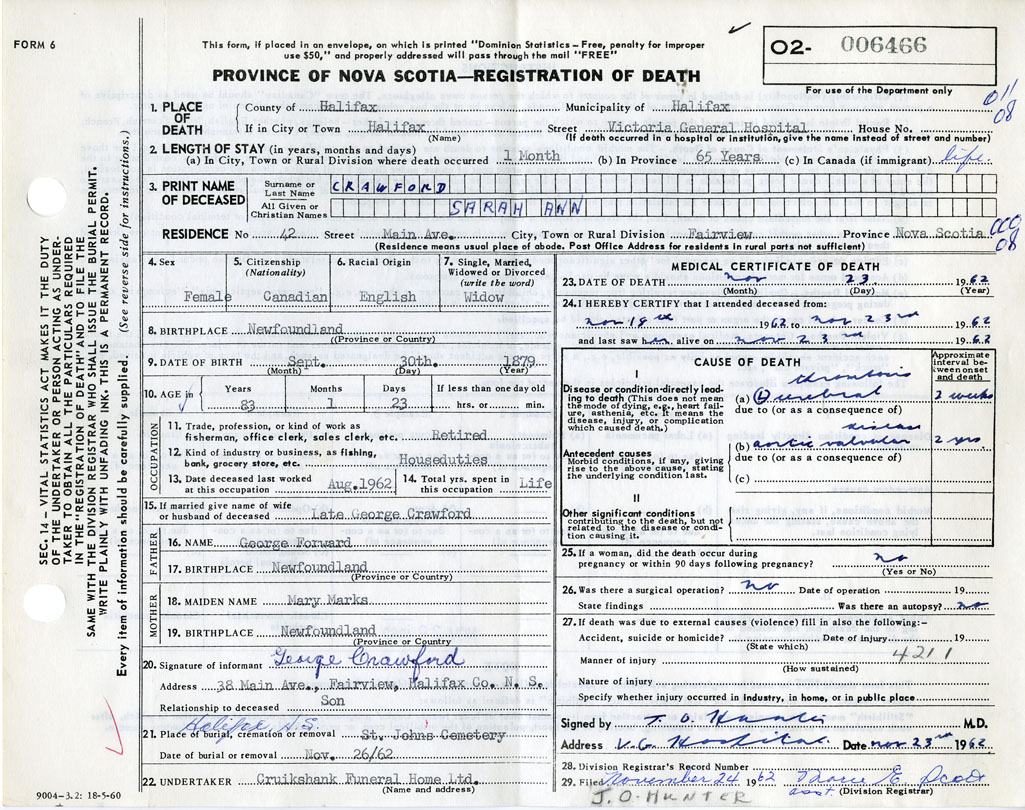 FORM 6
This form, if placed in an envelope, on which is printed "Dominion Statistics – Free, penalty for improper
use $50," and properly addressed will pass through the mail "FREE"
PROVINCE OF NOVA SCOTIA—REGISTRATION OF DEATH
O2- 006466
For use of the Department only
011
08
1. PLACE OF DEATH
County of Halifax Municipality of Halifax
If in City or Town Halifax Street Victoria General Hospital House No.
(Name) (If death occurred in a hospital or institution, give the name instead of street and number)
2. LENGTH OF STAY (in years, months and days)
(a) In City, Town or Rural Division where death occurred 1 Month (b) In Province 65 Years (c) In Canada (if immigrant) life.
3. PRINT NAME OF DECEASED
Surname or Last Name CRAWFORD
All Given or Christian Names SARAH ANN
RESIDENCE No 42 Street Main Ave. City, Town or Rural Division Fairview Province Nova Scotia
08
(Residence means usual place of abode. Post Office Address for residents in rural parts not sufficient)
4. Sex Female
5. Citizenship (Nationality) Canadian
6. Racial Origin English
7. Single, Married, Widowed or Divorced (write the word) Widow
8. BIRTHPLACE Newfoundland
((Province or Country)
9. DATE OF BIRTH Sept. 30th. 1879
(Month) (Day) (Year)
10. AGE in Years 83 Months 1 Days 23 If less than one day old hrs. or min.
OCCUPATION
11. Trade, profession, or kind of work as
fisherman, office clerk, sales clerk, etc. Retired
12. Kind of industry or business, as fishing,
bank, grocery store, etc. Houseduties
13. Date deceased last worked at this occupation Aug.1962
14. Total yrs. spent in this occupation Life
15. If married give name of wife
or husband of deceased Late George Crawford
FATHER
16. NAME George Forward
17. BIRTHPLACE Newfoundland
(Province or Country)
MOTHER
18. MAIDEN NAME Mary Marks
19. BIRTHPLACE Newfoundland
(Province or Country
20. Signature of informant George Crawford
Address 38 Main Ave., Fairview, Halifax Co. N. S.
Relationship to deceased Son
Halifax N.S.
21. Place of burial, cremation or removal St. Johns Cemetery
Date of burial or removal Nov. 26/62
22. UNDERTAKER Cruikshank Funeral Home Ltd.
(Name and address)
9004-3.2: 18-5-60
MEDICAL CERTIFICATE OF DEATH
23. DATE OF DEATH Nov 23 1962
(Month) (Day) (Year)
24. I HEREBY CERTIFY that I attended deceased from:
Nov 19th 1962 to Nov 23rd 1962
and last saw her alive on Nov 23rd 1962
CAUSE OF DEATH
Approximate interval between onset and death
I
Disease or condition directly leading to death (This does not mean
the mode of dying, e.g., heart failure, asthenia, etc. It means the
disease, injury, or complication
which caused death.)
thrombosis
(a) Cerebral 2 weeks
due to (or as a consequence of)
disease
(b) aortic valvular 2 yrs
due to (or as a consequence of)
Antecedent causes
Morbid conditions, if any, giving
rise to the above cause, stating
the underlying condition last.
(c)
II
Other significant conditions
contributing to the death, but not
related to the disease or condition causing it.
25. If a woman, did the death occur during
pregnancy or within 90 days following pregnancy? no
(Yes or No)
26. Was there a surgical operation? no Date of operation 19
State findings Was there an autopsy? no
27. If death was due to external causes (violence) fill in also the following:–
Accident, suicide or homicide? Date of injury 19
(State which)
4211
Manner of injury
(How sustained)
Nature of injury
Specify whether injury occurred in industry, in home, or in public place
Signed by J. O. Hunter M.D.
Address V.G. Hospital Date Nov 23rd 1962.
28. Division Registrar's Record Number
29. Filed November 24 1962
asst. (Division Registrar)
J.O. HUNTER
SEC. 14 – VITAL STATISTICS ACT MAKES IT THE DUTY
OF THE UNDERTAKER OR PERSON ACTING AS UNDER-
TAKER TO OBTAIN ALL THE PARTICULARS REQUIRED
IN THE "REGISTRATION OF DEATH" AND TO FILE THE
SAME WITH THE DIVISION REGISTRAR WHO SHALL ISSUE THE BURIAL PERMIT.
WRITE PLAINLY WITH UNFADING INK. THIS IS A PERMANENT RECORD.
Every item of information should be carefully supplied. (See reverse side for instructions.)